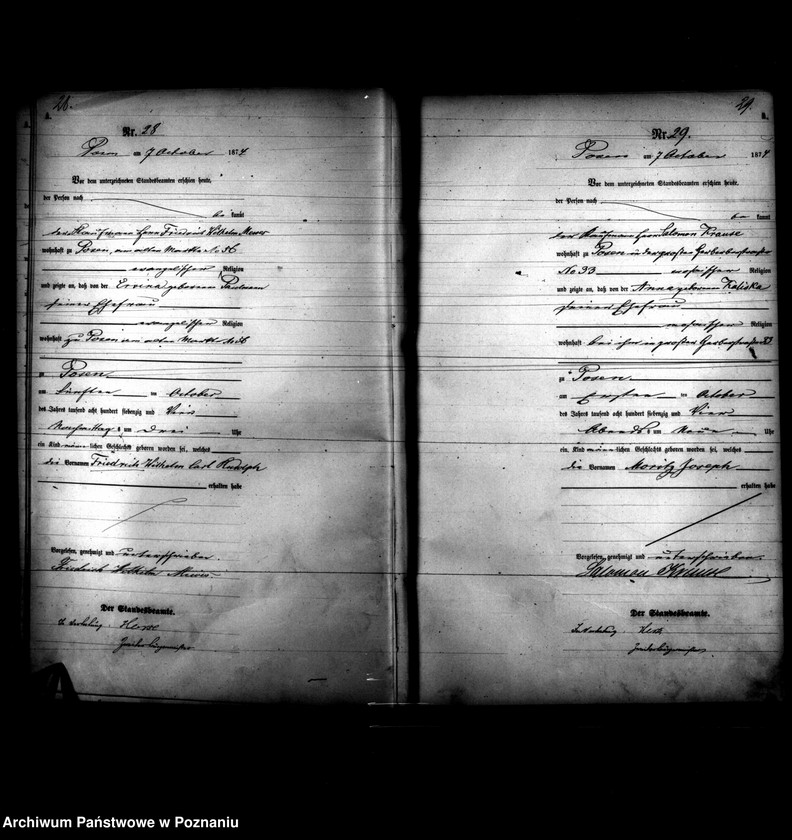 28.
A.
Nr. 28
Posen am 7 October 1874
Vor dem unterzeichneten Standesbeamten erschien heute,
der Person nach
be kannt
der Kaufmann Herr Friedrich Wilhelm Mewes
wohnhaft zu Posen, am alten Markte No 56
evangelischer Religion
und zeigte an, daß von der geborenen
seiner Ehefrau
evangelischer Religion
wohnhaft zu Posen am alten Markt
zu Posen
am fünften ten October
des Jahres tausend acht hundert siebenzig und Vier
Nachmittags um drei Uhr
ein Kind männlichen Geschlechts geboren worden sei, welches
die Vornamen Friedrich Wilhelm Carl Rudolph
erhalten habe
Vorgelesen, genehmigt und unterschrieben
Friedrich Wilhelm Mewes
Der Standesbeamte.
In Vertretung Herse
29.
B.
Nr. 29.
Posen am 7 October 1874
Vor dem unterzeichneten Standesbeamten erschien heute,
der Person nach
be kannt
der Kaufmann Herr Salomon Krause
wohnhaft zu Posen in der großen Gerberstraße
No 33 mosaischer Religion
und zeigte an, daß von der Anna geborenen Kaliska
seiner Ehefrau
mosaischer Religion
wohnhaft bei ihm in großer Gerberstraße 33
zu Posen
am Ersten ten October
des Jahres tausend acht hundert siebenzig und Vier
Abends um Neun Uhr
ein Kind männlichen Geschlechts geboren worden sei, welches
die Vornamen Moritz Joseph
erhalten habe
Vorgelesen, genehmigt und unterschrieben.
Salomon Krause
Der Standesbeamte.
In Vertretung Herse
Archiwum Państwowe w Poznaniu